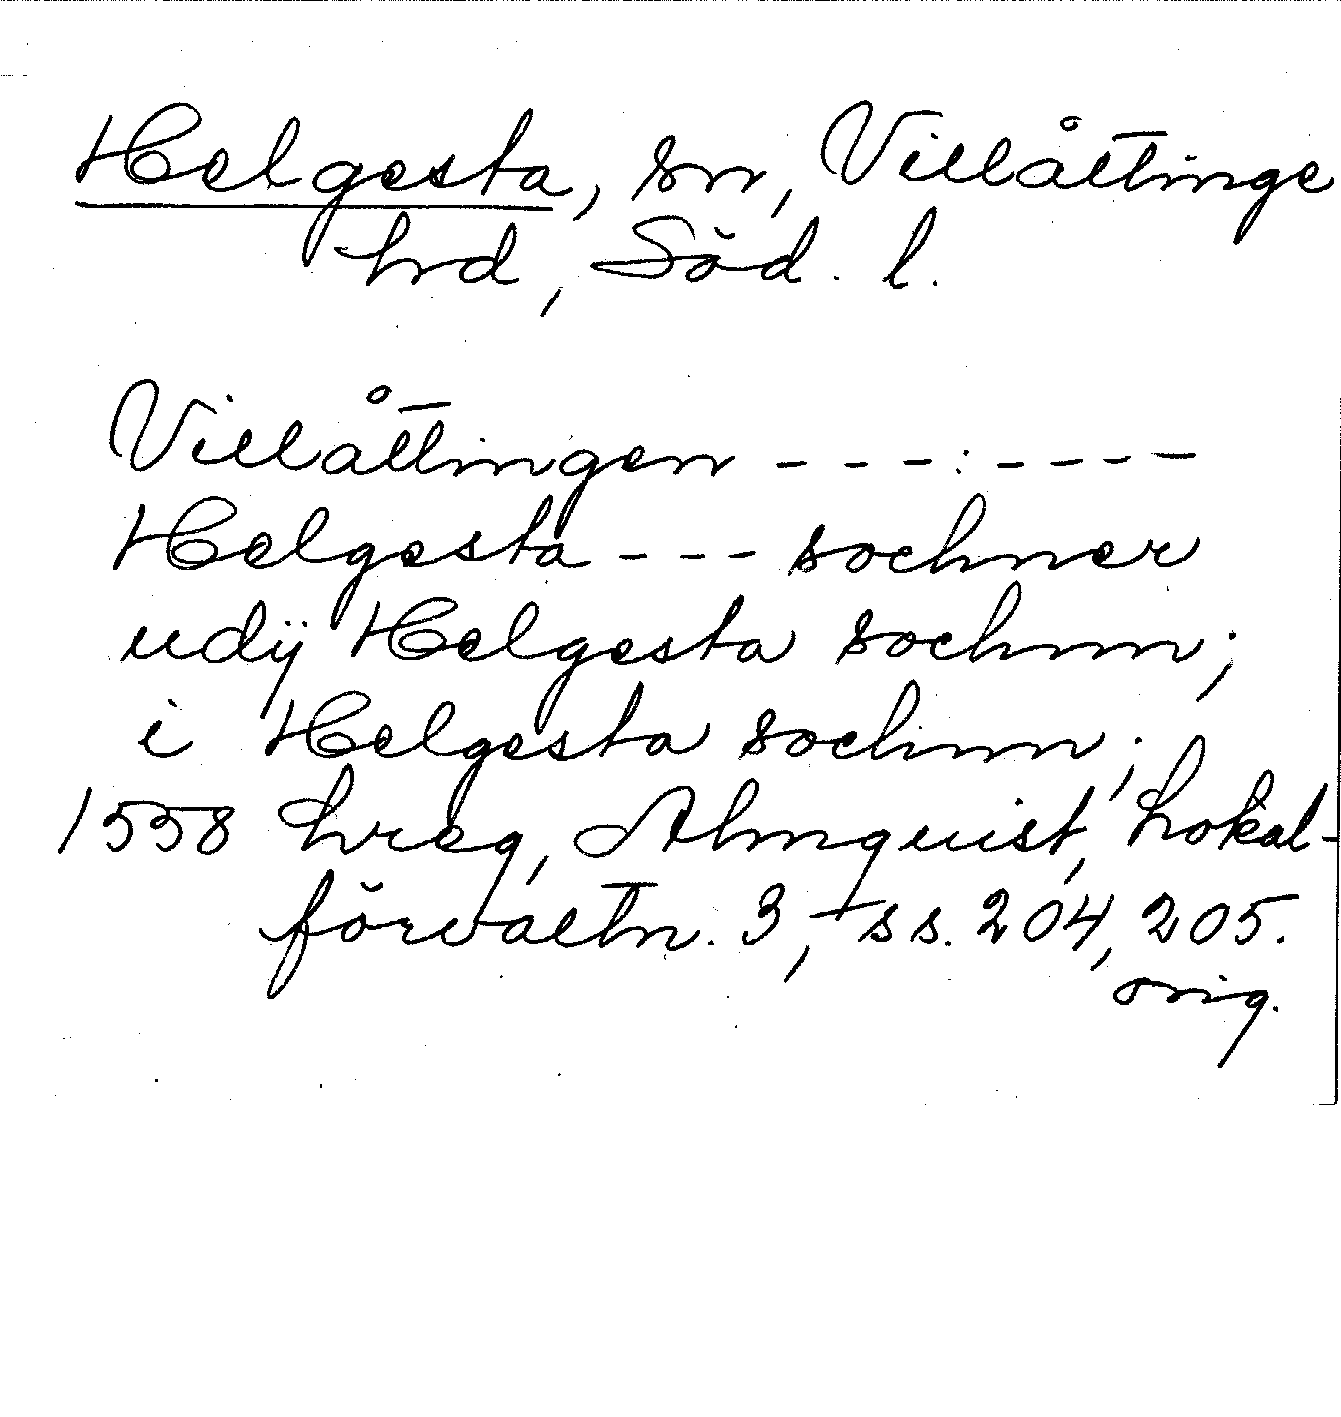 Helgesta, sn, Villåttinge
hrd, Söd. l.
Villåttingen - - - : - - - -
Helgesta - - - sochner
udij Helgesta sochnn;
i Helgesta sochnn;
1558 hreg, Almquist, Lokal-
förvaltn. 3, ss. 204, 205.
orig.